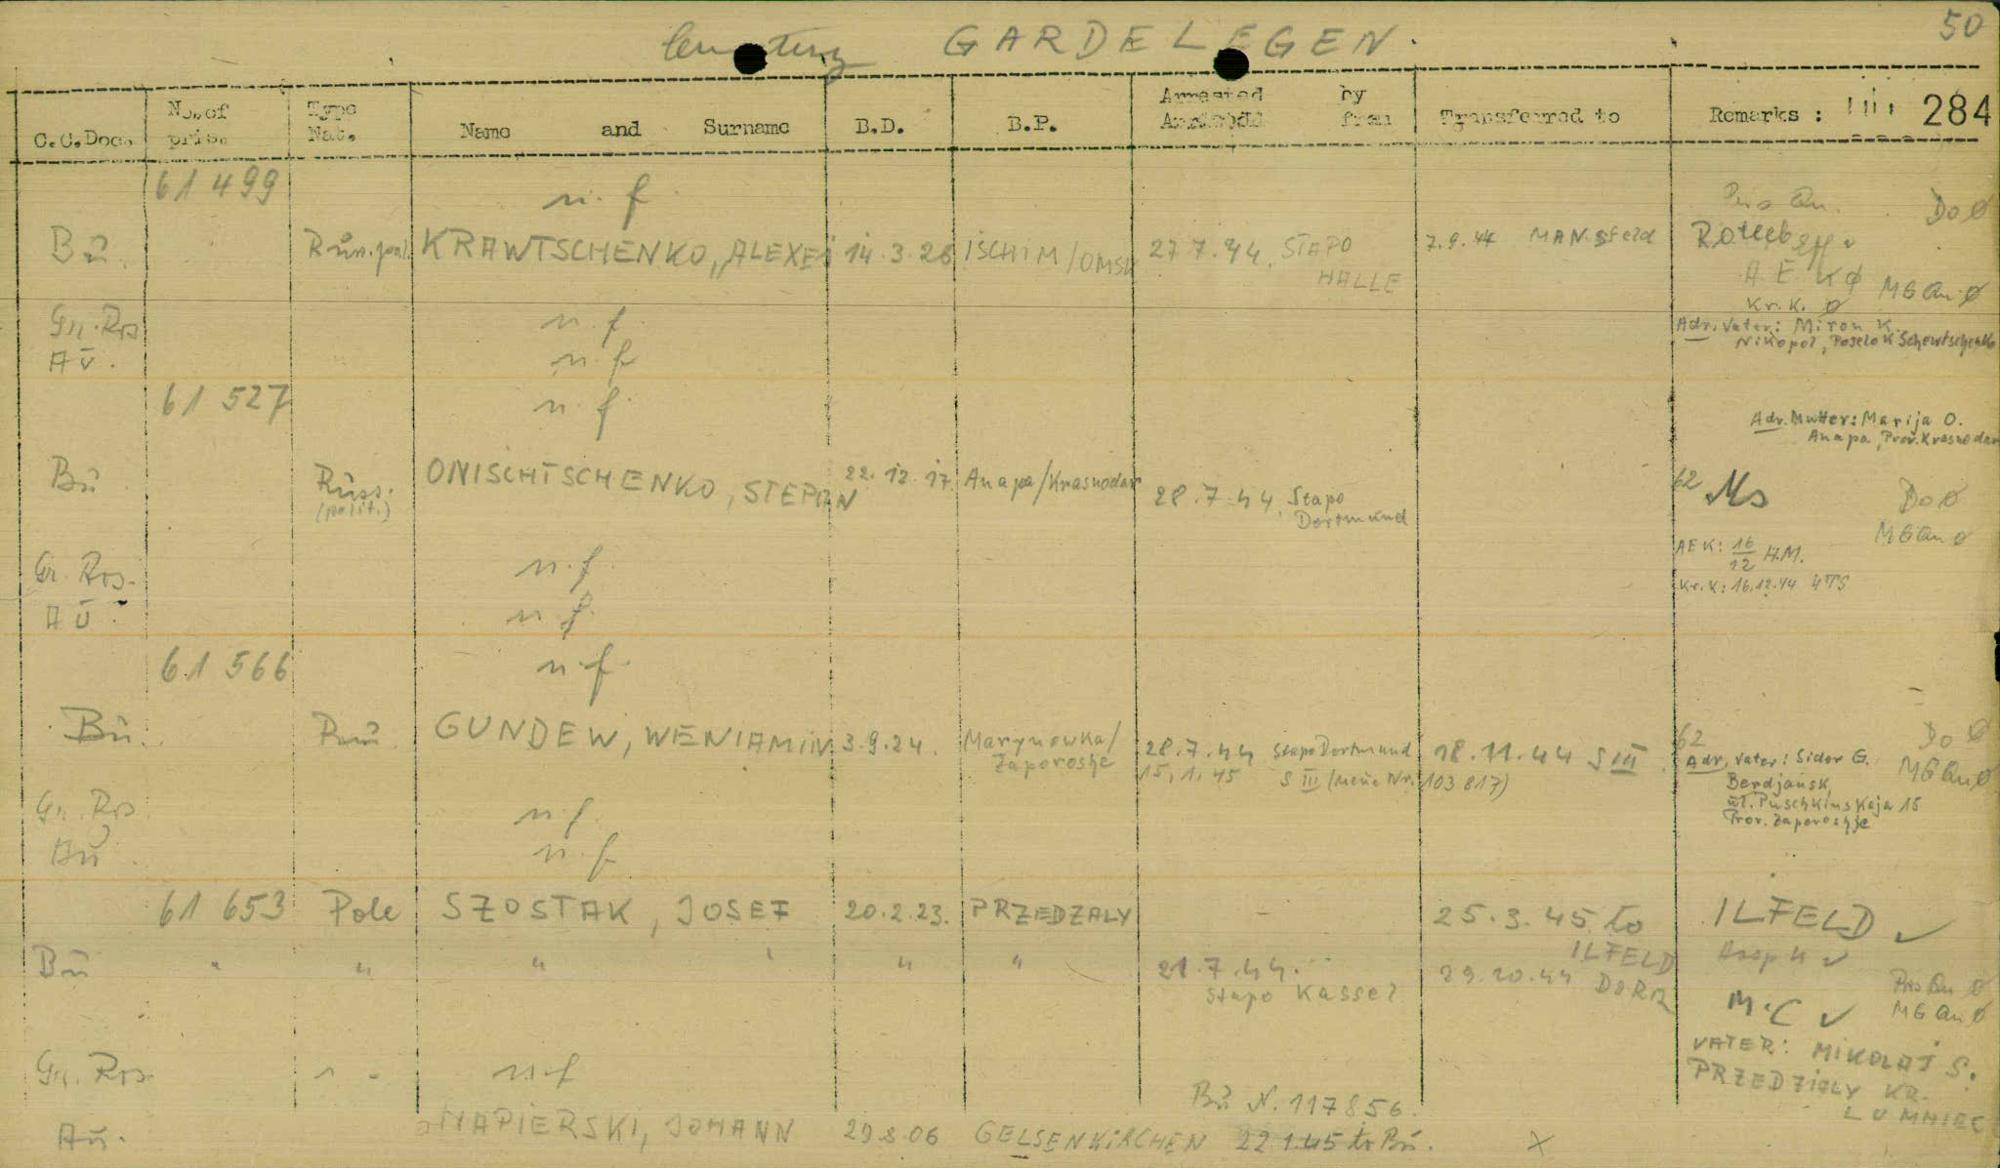 50
Cemetery GARDELEGEN.
C.C.Docs. No. of pris. Type Nat. Name and Surname B.D. B.P. Arrested by from Transferred to Remarks : 284
61 499 n. f
Do Ø
Bu. KRAWTSCHENKO, ALEXEI 14.3.26 ISCHIM/OMSK 27.7.44. STAPO 7.9.44 MANSfeld
HALLE
A E K Ø MG Qu Ø
Kr. K. Ø
Gr. Ros n. f. Adr. Vater: Miron K.
Nikopol, Poselok Schewtschenko
Au. n. f
61 527 n. f.
Adr. Mutter: Marija O.
Anapa, Prov. Krasnodar
Bu Russ. ONISCHTSCHENKO, STEPAN 22.12.17 Anapa/Krasnodar 28.7.44. Stapo 62 Do Ø
(polit.) Dortmund
MG Qu Ø
Gr. Ros. n. f. AEK: 16/12 H.M.
Kr. K: 16.12.44 4TS
Au. n. f.
61 566 n. f.
Bu. Ru GUNDEW, WENIAMIN 3.9.24. Marynowka/ 28.7.44 Stapo Dortmund 18.11.44 S III 62 Do Ø
Zaporoshe 15.1.45 S III (neue Nr. 103 817) Adr. Vater: Sidor G. MG Qu Ø
Berdjansk,
ul. Puschkinskaja 15
Prov. Zaporoshje
Gr. Ros n. f.
Au n. f
61 653 Pole SZOSTAK, JOSEF 20.2.23. PRZEDZALY - 25.3.45 to ILFELD ✓
ILFELD
Bu " " " " " 21.7.44. 29.10.44 DORA
Stapo Kassel
M.C ✓ MG Qu Ø
VATER: MIKOLAJ S.
Gr. Ros n. f PRZEDZIALY KR.
Bu N. 117856.
Au. NAPIERSKI, JOHANN 29 8.06 GELSENKIRCHEN 22 1.45 to Bu. X